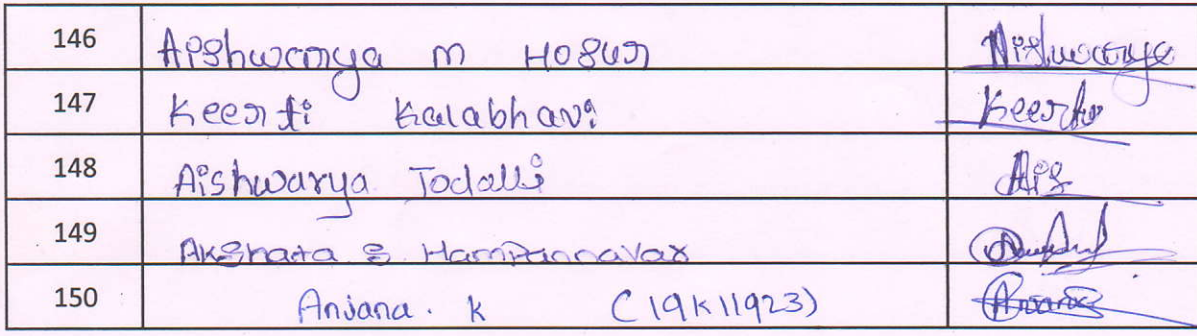 146 Aishwarya M Hosur Aishwarya
147 Keerti Kalabhavi Keerti
148 Aishwarya Todalli Ais
149 Akshata S Hampannavar
150 Anjana. K (19K11923) Anjana